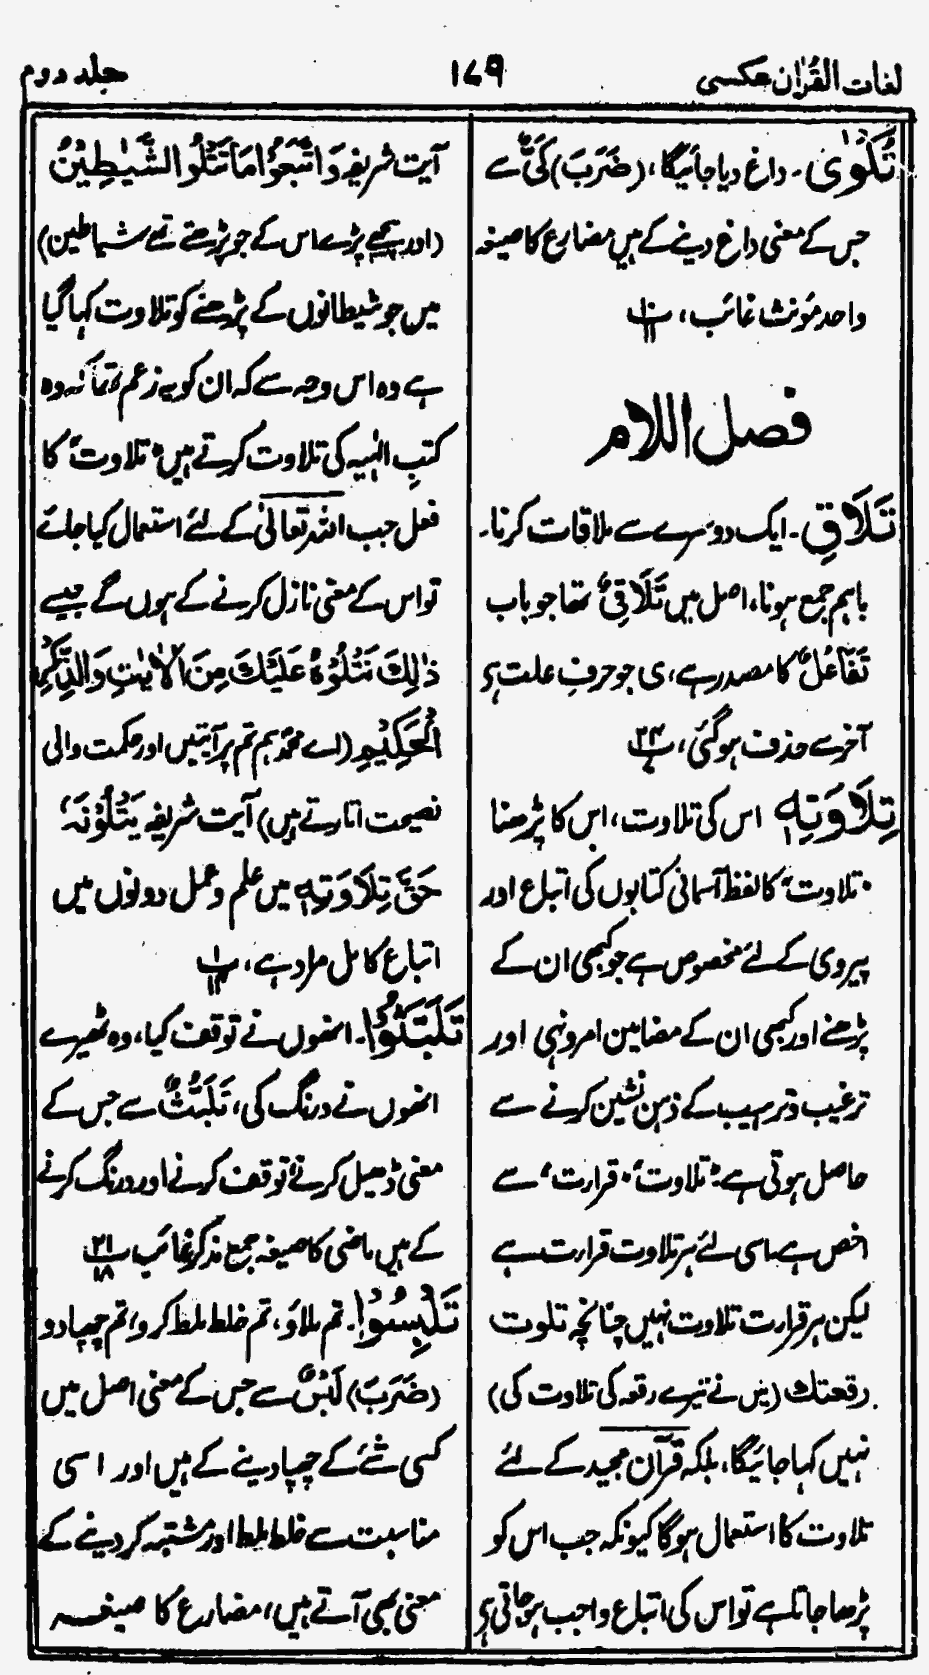 لغات القرآن عکسی
۱۷۹
جلد دوم
تُكْوٰى۔ داغ دیا جائیگا، (ضَرَبَ) كَیٌّ سے
جس کے معنی داغ دینے کے ہیں مضارع کا صیغہ
واحد مؤنث غائب،
فصل اللام
تَلَاقِ۔ ایک دوسرے سے ملاقات کرنا۔
باہم جمع ہونا، اصل میں تَلَاقِیٌ تھا جو باب
تَفَاعُلٌ کا مصدر ہے، ی جو حرف علت ہے
آخر سے حذف ہوگئی،
تِلَاوَتِهٖ اس کی تلاوت، اس کا پڑھنا
"تلاوت" کا لفظ آسمانی کتابوں کی اتباع اور
پیروی کے لئے مخصوص ہے جو کبھی ان کے
پڑھنے اور کبھی ان کے مضامین امر و نہی اور
ترغیب و ترہیب کے ذہن نشین کرنے سے
حاصل ہوتی ہے "تلاوت" "قرارت" سے
اخص ہے اسی لئے ہر تلاوت قرارت ہے
لیکن ہر قرارت تلاوت نہیں چنانچہ تلوت
رقعتك (میں نے تیرے رقعہ کی تلاوت کی)
نہیں کہا جائیگا، بلکہ قرآن مجید کے لئے
تلاوت کا استعمال ہوگا کیونکہ جب اس کو
پڑھا جاتا ہے تو اس کی اتباع واجب ہوجاتی ہے
آیت شریفہ وَاتَّبَعُوْا مَا تَتْلُوا الشَّيٰطِيْنُ
(اور پیچھے پڑے اس کے جو پڑھتے تھے شیاطین)
میں جو شیطانوں کے پڑھنے کو تلاوت کہا گیا
ہے وہ اس وجہ سے کہ ان کو یہ زعم تھا کہ وہ
کتبِ الٰہیہ کی تلاوت کرتے ہیں "تلاوت" کا
فعل جب اللہ تعالیٰ کے لئے استعمال کیا جائے
تو اس کے معنی نازل کرنے کے ہوں گے جیسے
ذٰلِكَ نَتْلُوْهُ عَلَيْكَ مِنَ الْاٰيٰتِ وَالذِّكْرِ
الْحَكِيْمِ (اے محمدؐ ہم تم پر آیتیں اور حکمت والی
نصیحت اتارتے ہیں) آیت شریفہ يَتْلُوْنَهٗ
حَقَّ تِلَاوَتِهٖ میں علم و عمل دونوں میں
اتباع کامل مراد ہے،
تَلَبَّثُوْا۔ انھوں نے توقف کیا، وہ ٹھیرے
انھوں نے درنگ کی، تَلَبُّثٌ سے جس کے
معنی ڈھیل کرنے توقف کرنے اور درنگ کرنے
کے ہیں ماضی کا صیغہ جمع مذکر غائب
تَلْبِسُوْا۔ تم ملاؤ، تم خلط ملط کرو، تم چھپا دو
(ضَرَبَ) لَبْسٌ سے جس کے معنی اصل میں
کسی شئے کے چھپا دینے کے ہیں اور اسی
مناسبت سے خلط ملط اور مشتبہ کردینے کے
معنی بھی آتے ہیں، مضارع کا صیغہ